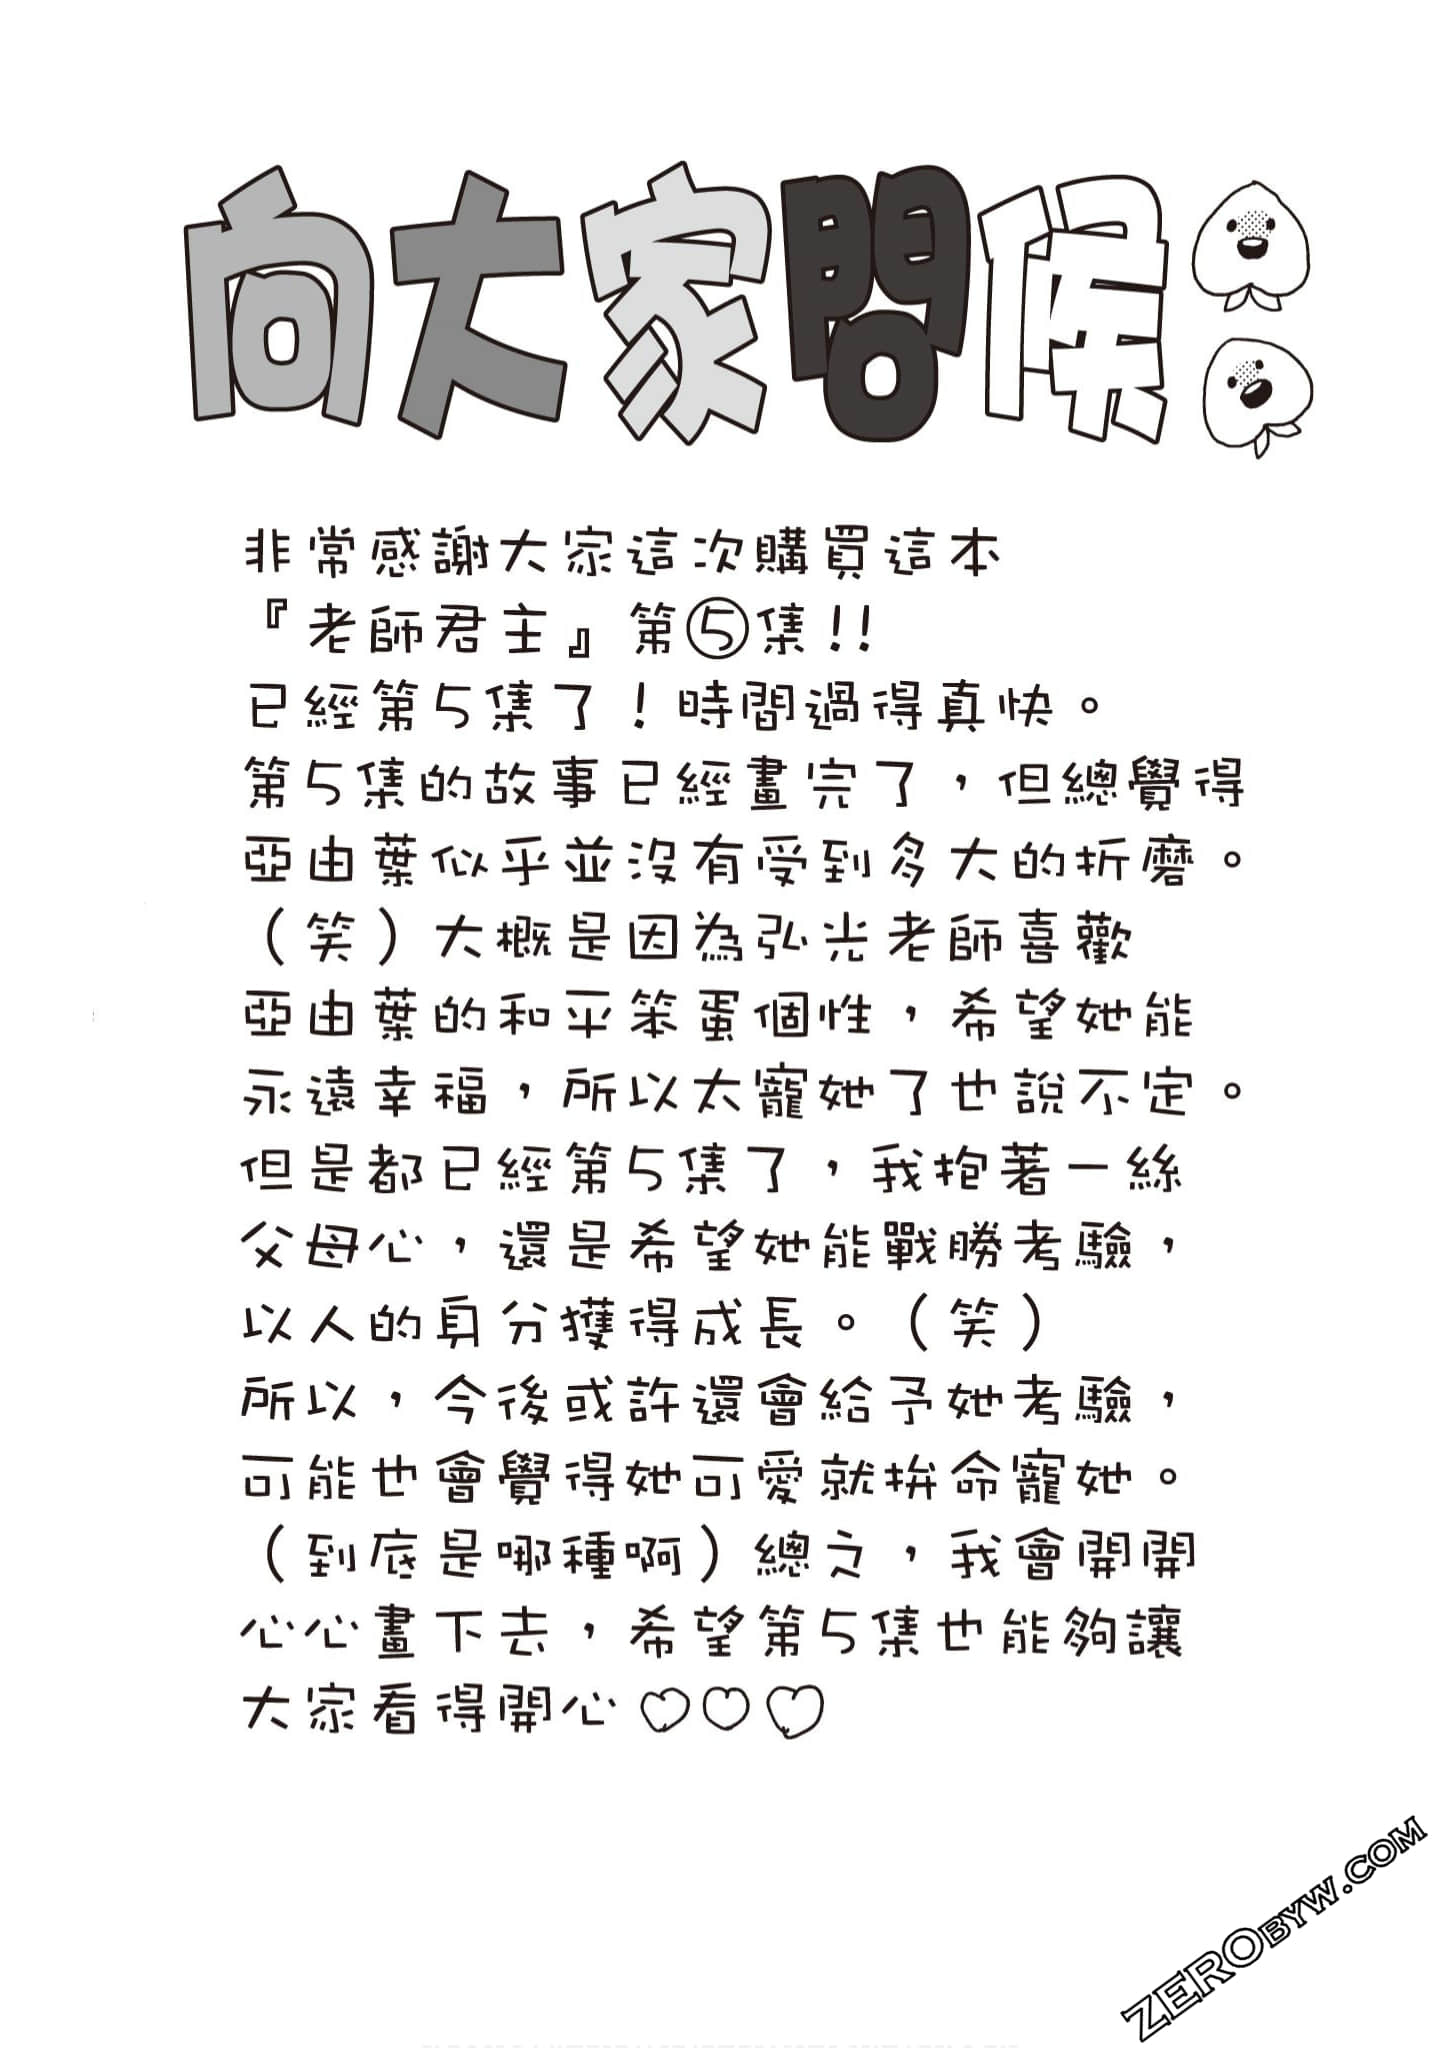 向大家問候
非常感謝大家這次購買這本
『老師君主』第⑤集!!
已經第5集了！時間過得真快。
第5集的故事已經畫完了，但總覺得
亞由葉似乎並沒有受到多大的折磨。
（笑）大概是因為弘光老師喜歡
亞由葉的和平笨蛋個性，希望她能
永遠幸福，所以太寵她了也說不定。
但是都已經第5集了，我抱著一絲
父母心，還是希望她能戰勝考驗，
以人的身分獲得成長。（笑）
所以，今後或許還會給予她考驗，
可能也會覺得她可愛就拚命寵她。
（到底是哪種啊）總之，我會開開
心心畫下去，希望第5集也能夠讓
大家看得開心♡♡♡
ZEROBYW.COM